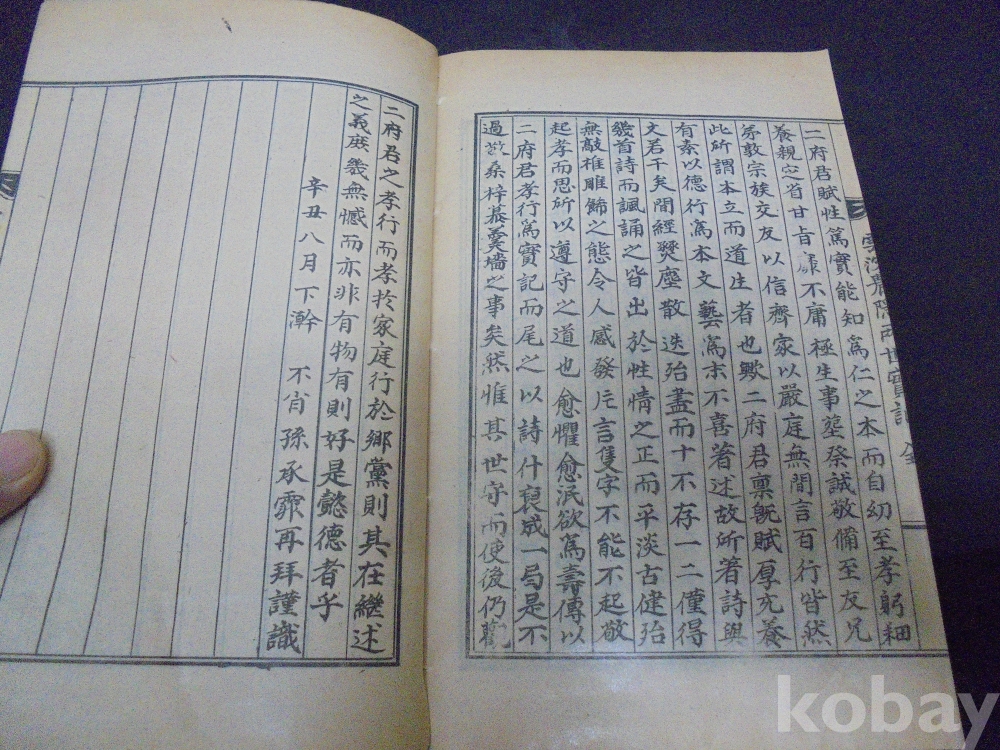 二府君賦性篤實能知爲仁之本而自幼至孝躬細
養親定省甘旨 不庸極生事 祭誠敬備至友兄
弟敦宗族交友以信齊家以嚴庭無間言百行皆然
此所謂本立而道生者也歟二府君禀旣賦厚充養
有素以德行爲本文藝爲末不喜著述故所著詩與
文若干矣間經燹塵散迭殆盡而十不存一二僅得
幾首詩而諷誦之皆出於性情之正而平淡古健殆
無敲椎雕飾之態令人感發片言隻字不能不起敬
起孝而思所以遵守之道也愈懼愈泯欲爲壽傳以
二府君孝行爲實記而尾之以詩什裒成一局是不
過 桑梓慕羹墻之事矣然惟其世守而使後仍觀
二府君之孝行而孝於家庭行於鄉黨則其在繼述
之義庶幾無憾而亦非有物有則好是懿德者乎
辛丑八月下澣 不肖孫承霏再拜謹識
農隱兩世實記 全
kobay